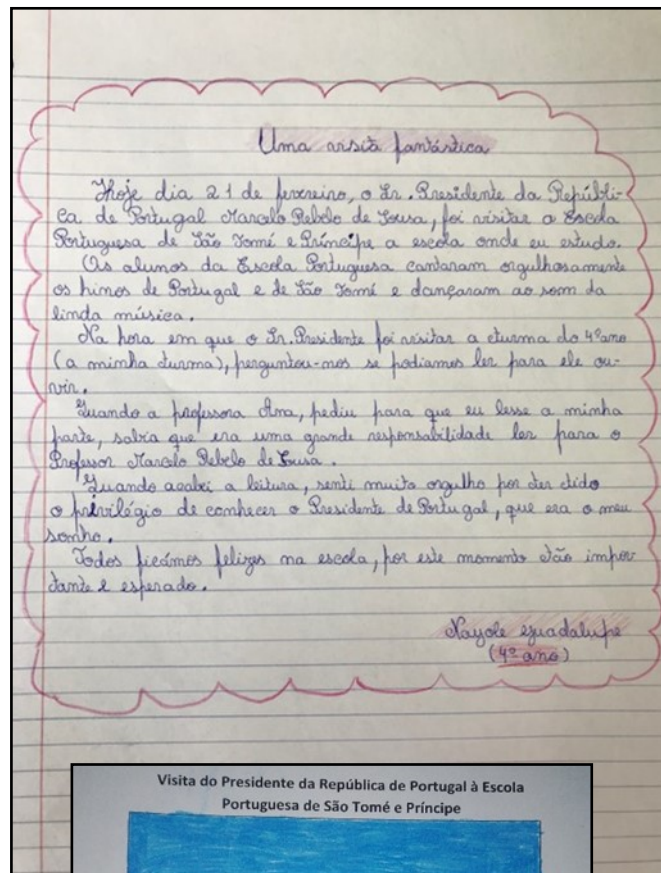 Uma visita fantástica
Hoje dia 21 de fevereiro, o Sr. Presidente da Repúbli-
ca de Portugal Marcelo Rebelo de Sousa, foi visitar a Escola
Portuguesa de São Tomé e Príncipe a escola onde eu estudo.
Os alunos da Escola Portuguesa cantaram orgulhosamente
os hinos de Portugal e de São Tomé e dançaram ao som da
linda música.
Na hora em que o Sr. Presidente foi visitar a turma do 4º ano
(a minha turma), perguntou-nos se podiamos ler para ele ou-
vir.
Quando a professora Ana, pediu para que eu lesse a minha
parte, sabia que era uma grande responsabilidade ler para o
Professor Marcelo Rebelo de Sousa.
Quando acabei a leitura, senti muito orgulho por ter tido
o privilégio de conhecer o Presidente de Portugal, que era o meu
sonho.
Todos ficámos felizes na escola, por este momento tão impor
tante e esperado.
Nayole Guadalupe
(4º ano)
Visita do Presidente da República de Portugal à Escola
Portuguesa de São Tomé e Príncipe